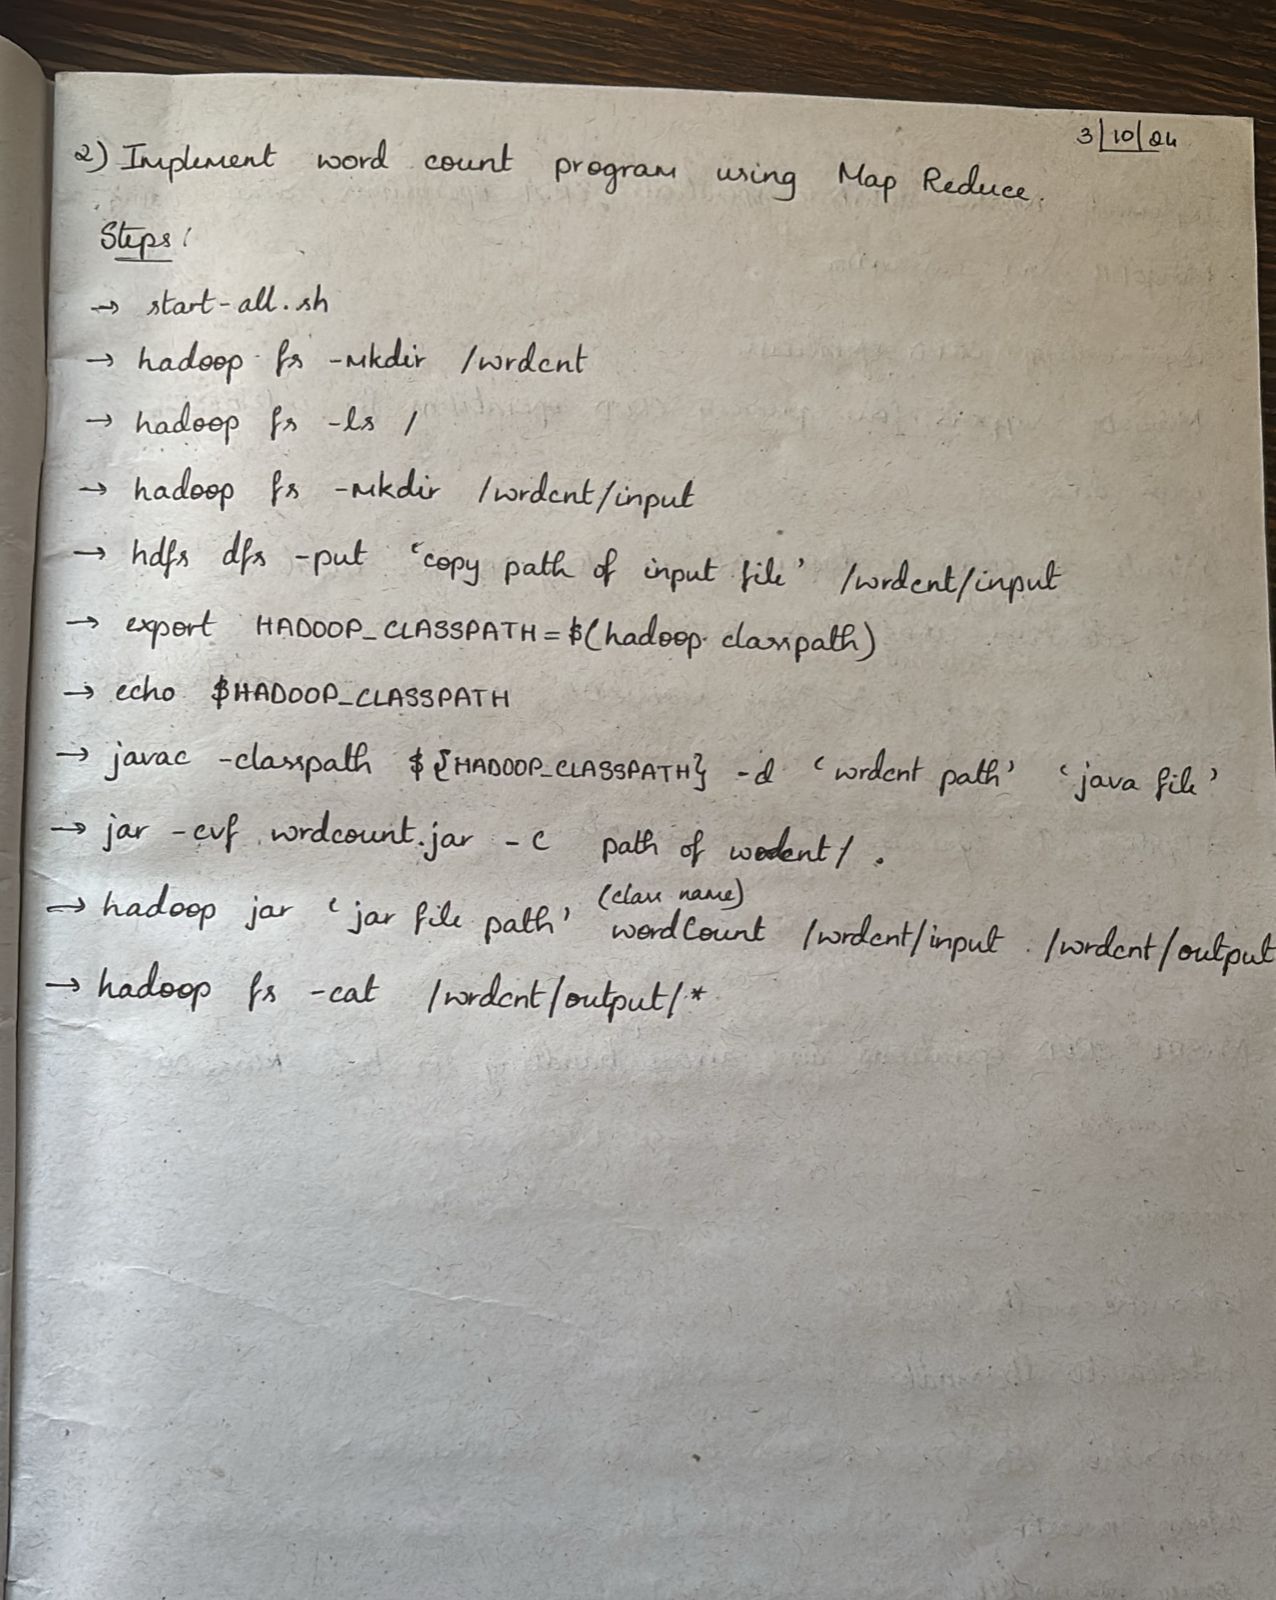 3/10/24
2) Implement word count program using Map Reduce.
Steps:
→ start-all.sh
→ hadoop fs -mkdir /wrdcnt
→ hadoop fs -ls /
→ hadoop fs -mkdir /wrdcnt/input
→ hdfs dfs -put 'copy path of input file' /wrdcnt/input
→ export HADOOP_CLASSPATH=$(hadoop classpath)
→ echo $HADOOP_CLASSPATH
→ javac -classpath ${HADOOP_CLASSPATH} -d 'wrdcnt path' 'java file'
→ jar -cvf wrdcount.jar -C path of wrdcnt/ .
(class name)
→ hadoop jar 'jar file path' wordCount /wrdcnt/input /wrdcnt/output
→ hadoop fs -cat /wrdcnt/output/*